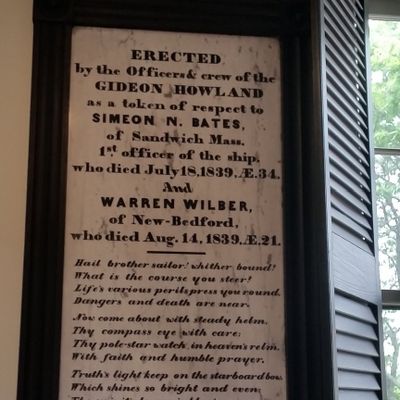 ERECTED
by the Officers & crew of the
GIDEON HOWLAND
as a token of respect to
SIMEON N. BATES,
of Sandwich Mass.
1st officer of the ship,
who died July 18, 1839. Æ. 34.
And
WARREN WILBER,
of New-Bedford,
who died Aug. 14, 1839. Æ. 21.
Hail brother sailor! whither bound?
What is the course you steer?
Life's various perils press you round,
Dangers and death are near.
Now come about with steady helm,
Thy compass eye with care;
Thy pole-star watch, in heaven's re'lm,
With faith and humble prayer.
Truth's light keep on the starboard bow,
Which shines so bright and even;